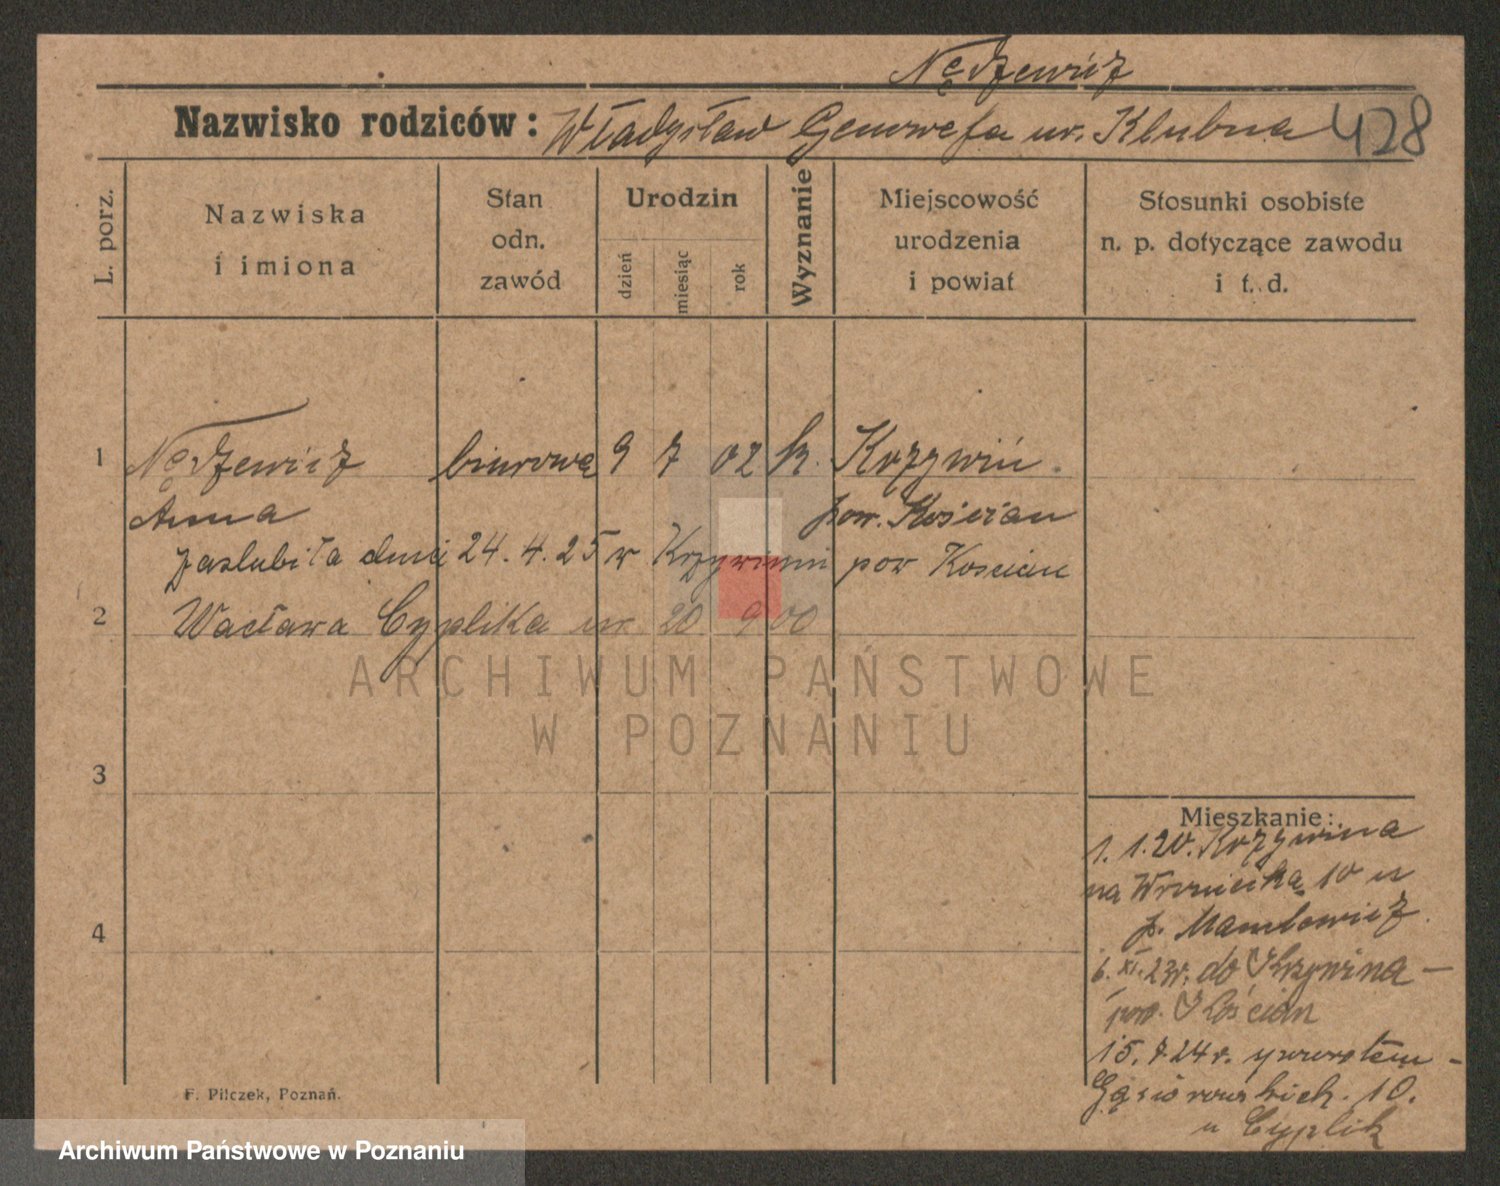 Nędzewicz
Nazwisko rodziców: Władysław Genowefa ur. Klubna 428
L. porz.
Nazwiska
i imiona
Stan
odn.
zawód
Urodzin
dzień
miesiąc
rok
Wyznanie
Miejscowość
urodzenia
i powiat
Stosunki osobiste
n. p. dotyczące zawodu
i t. d.
1 Nędzewicz biurowa 9 7 02 k. Krzywiń.
Anna pow. Kościan
zaslubiła dnia 24.4.25 w Krzywiniu pow Koscian
2 Wacława Cyplika ur. 20 9 00
3
4
Mieszkanie:
1. 1.20. Krzywina
na 10 u
p.
6. XI. 23r. do Krzywina –
pow. Kościan
15.7.24r. z powrotem –
Gąsiorowskich. 10.
u Cyplik
F. Pilczek, Poznań.
ARCHIWUM PAŃSTWOWE
W POZNANIU
Archiwum Państwowe w Poznaniu